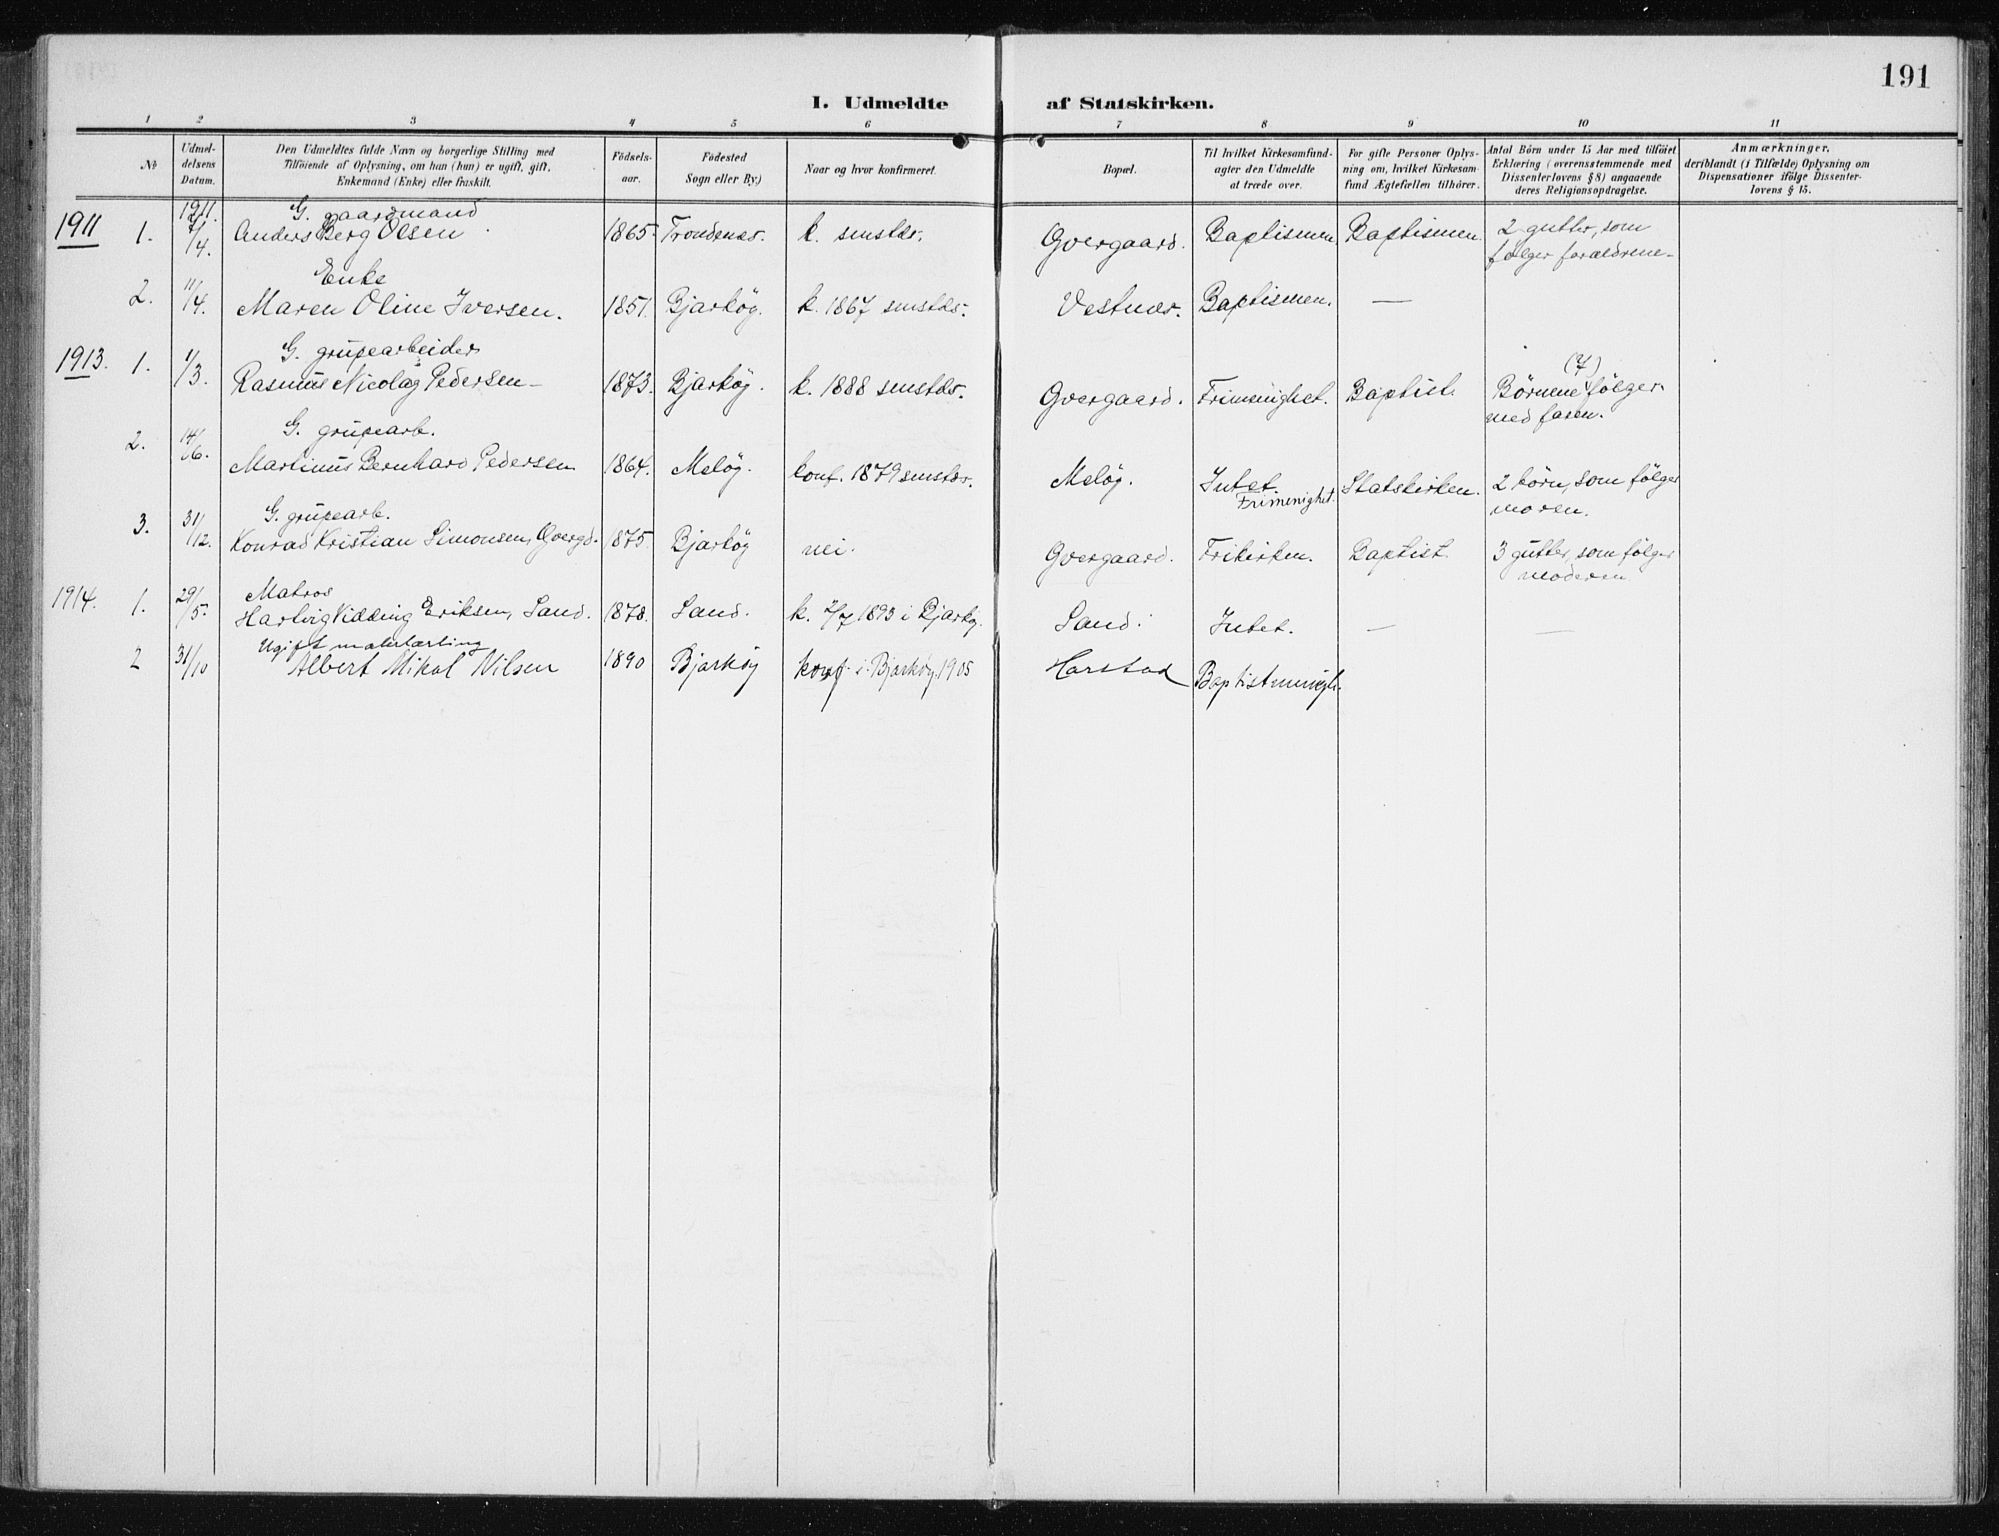 191
I. Udmeldte af Statskirken.
1 2 3 4 5 6 7 8 9 10 11
No
Udmel-
delsens
Datum.
Den Udmeldtes fulde Navn og borgerlige Stilling med
Tilföiende af Oplysning, om han (hun) er ugift, gift,
Enkemand (Enke) eller fraskilt.
Födsels-
aar.
Födested
Sogn eller By.)
Naar og hvor konfirmeret.
Bopæl.
Til hvilket Kirkesamfund-
agter den Udmeldte
at træde over.
For gifte Personer Oplys-
ning om, hvilket Kirkesam-
fund Ægtefællen tilhörer.
Antal Börn under 15 Aar med tilföiet
Erklæring (overensstemmende med
Dissenterlovens § 8) angaaende
deres Religionsopdragelse.
Anmærkninger,
deriblandt (i Tilfælde) Oplysning om
Dispensationer ifölge Dissenter-
lovens § 15.
1911. G. gaardmand
1911 1. 7/4. Anders Berg Olsen 1865. Trondenæs. k. smstds. Gvergaard. Baptismen Baptismen 2 gutter, som
følger forældrene
Enke
2. 11/4. Maren Oline Iversen. 1851. Bjarköy. k. 1867 smstds. Vestnes. Baptismen. —
G. grubearbeider
1913. 1. 1/3. Rasmus Nicolay Pedersen 1873. Bjarköy. k. 1888 smstds. Gvergaard. Frimenighet. Baptist. Börnene (4) fölger
med faren.
G. grubearb.
2. 14/6. Martinus Bernhard Pedersen 1864. Melöy. konf. 1879 smstds. Melöy. Intet Statskirken. 2 börn, som fölger
Frimenighet. moren.
G. grubearb.
3. 31/12. Konrad Kristian Simonsen, Gvergd. 1875. Bjarköy nei. Gvergaard. Frikirken. Baptist 3 gutter, som fölger
moderen
Matros
1914. 1. 29/5. Hartvig Vidding Eriksen, Sand. 1878. Sand. k. 2/7 1893 i Bjarköy. Sand. Intet. — —
Ugift malerlærling
2 31/10 Albert Mikal Nilsen 1890 Bjarköy konf. i Bjarköy 1905 Harstad Baptistmenigh.